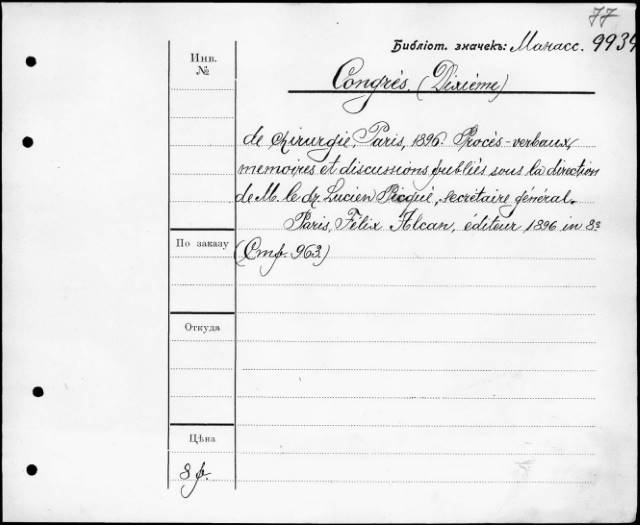 77
Библіот. значекъ: Манасс. 9934
Инв.
№
Congrès. (Dixième)
de chirurgie, Paris, 1896. Procès-verbaux,
memoires et discussions publiés sous la direction
de M. le dr. Lucien Picqué, secrétaire général.
Paris, Félix Alcan, éditeur 1896 in 8º
По заказу
(Стр. 963)
Откуда
Цѣна
8 р.